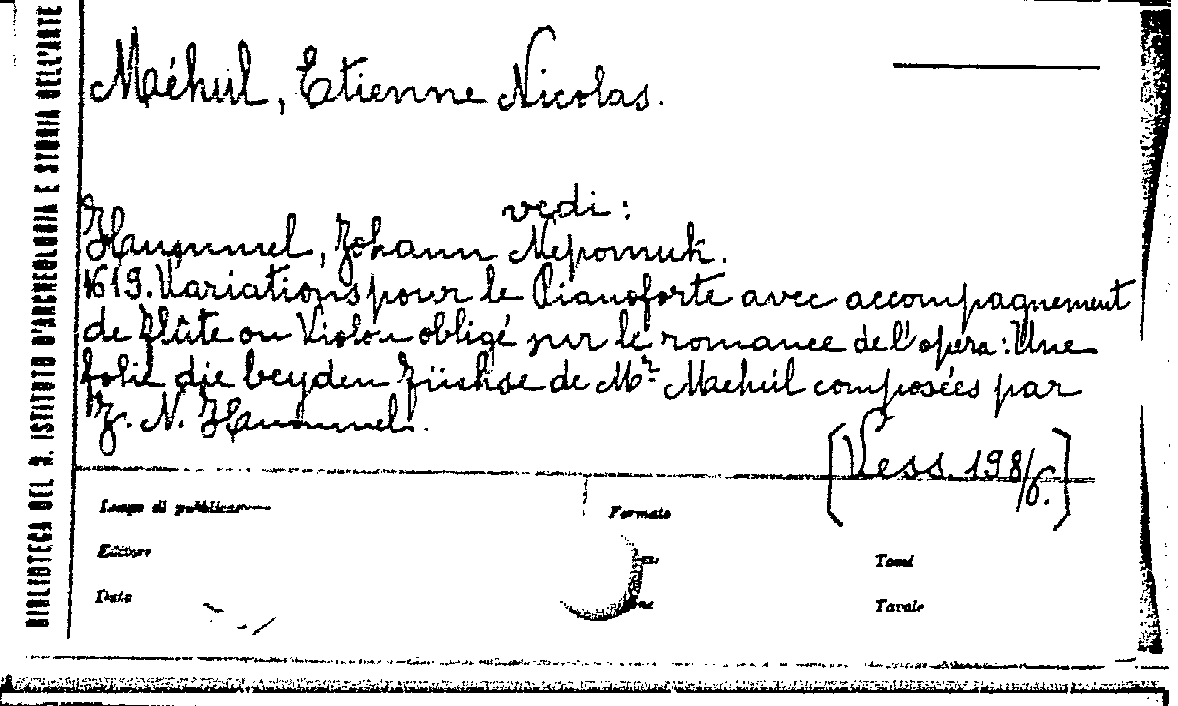 BIBLIOTECA DEL R. ISTITUTO D'ARCHEOLOGIA E STORIA DELL'ARTE
Méhul, Etienne Nicolas.
vedi:
Hummel, Johann Nepomuk.
1619. Variations pour le Pianoforte avec accompagnement
de Flûte ou Violon obligé sur le romance de l'opéra: Une
folie die beyden Füchse de Mr Mehúl composées par
J. N. Hummel.
[Vess. 198/6.]
Luogo di pubblicaz
Formato
Editore
Tomi
Data
Tavole